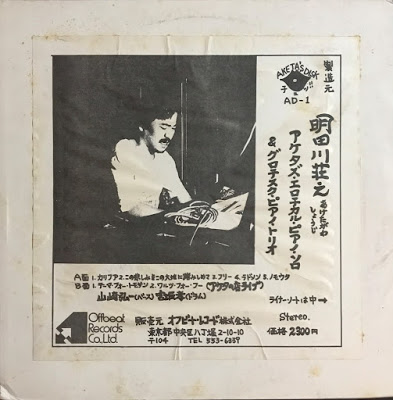 AKETA'S DISK
AD-1
製造元
明田川荘之
あけたがわ
しょうじ
アケタズ・エロチカル・ピアノ・ソロ
&グロテスク・ピアノ・トリオ
A面 1.カリフア 2.この悲しみをこの大地に踏みしめて 3.フリー
B面 1.テーマ・フォー・トモダン 2.ワルツ・フォー・フー (アケタの店ライブ)
山崎弘一(ベース) (ドラム)
ライナーノートは中→
Stereo.
価格 2300円
Offbeat
Records
Co., Ltd.
販売元 オフビート・レコード株式会社
東京都中央区八丁堀 2-10-10
〒104 TEL 553-6039